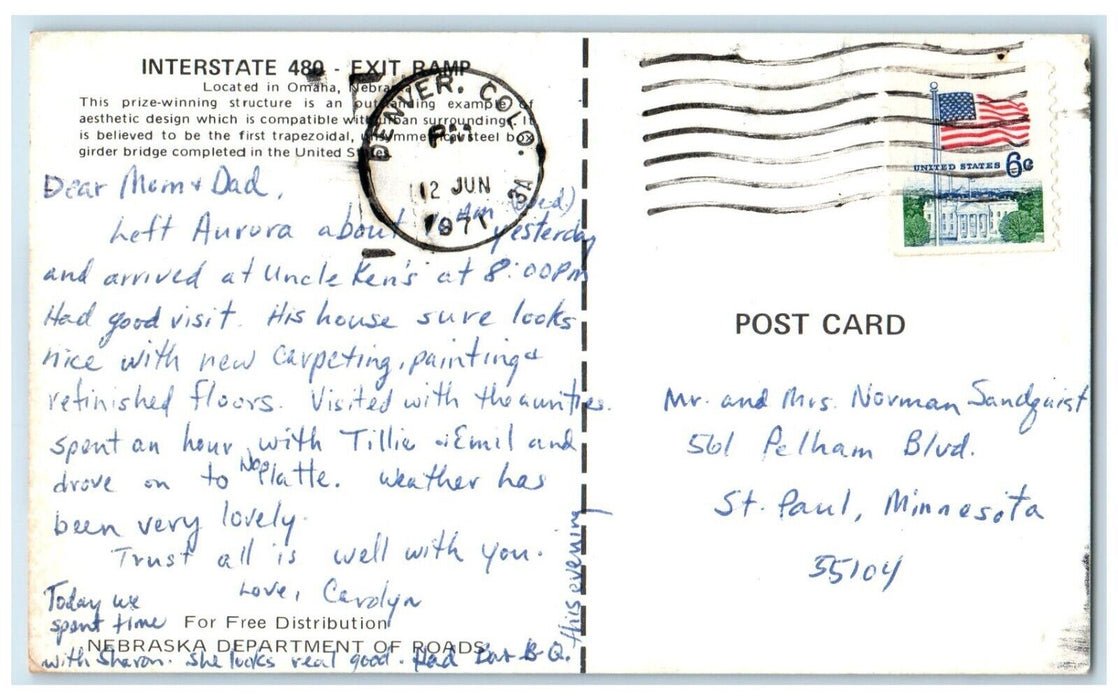 INTERSTATE 480 - EXIT RAMP
Located in Omaha, Nebraska
This prize-winning structure is an outstanding example of
aesthetic design which is compatible with urban surroundings. It
is believed to be the first trapezoidal, unsymmetrical steel box
girder bridge completed in the United States.
Dear Mom & Dad,
Left Aurora about AM (Wed) yesterday
and arrived at Uncle Ken's at 8:00PM
Had good visit. His house sure looks
nice with new carpeting, painting &
refinished floors. Visited with the aunties.
spent an hour with Tillie & Emil and
drove on to No. Platte. Weather has
been very lovely.
Trust all is well with you.
Love, Carolyn
Today we
spent time
with Sharon. She looks real good. Had Bar B-Q.
this evening
For Free Distribution
NEBRASKA DEPARTMENT OF ROADS
DENVER, COLO.
PM
12 JUN
1971
UNITED STATES 6c
POST CARD
Mr. and Mrs. Norman Sandquist
561 Pelham Blvd.
St. Paul, Minnesota
55104